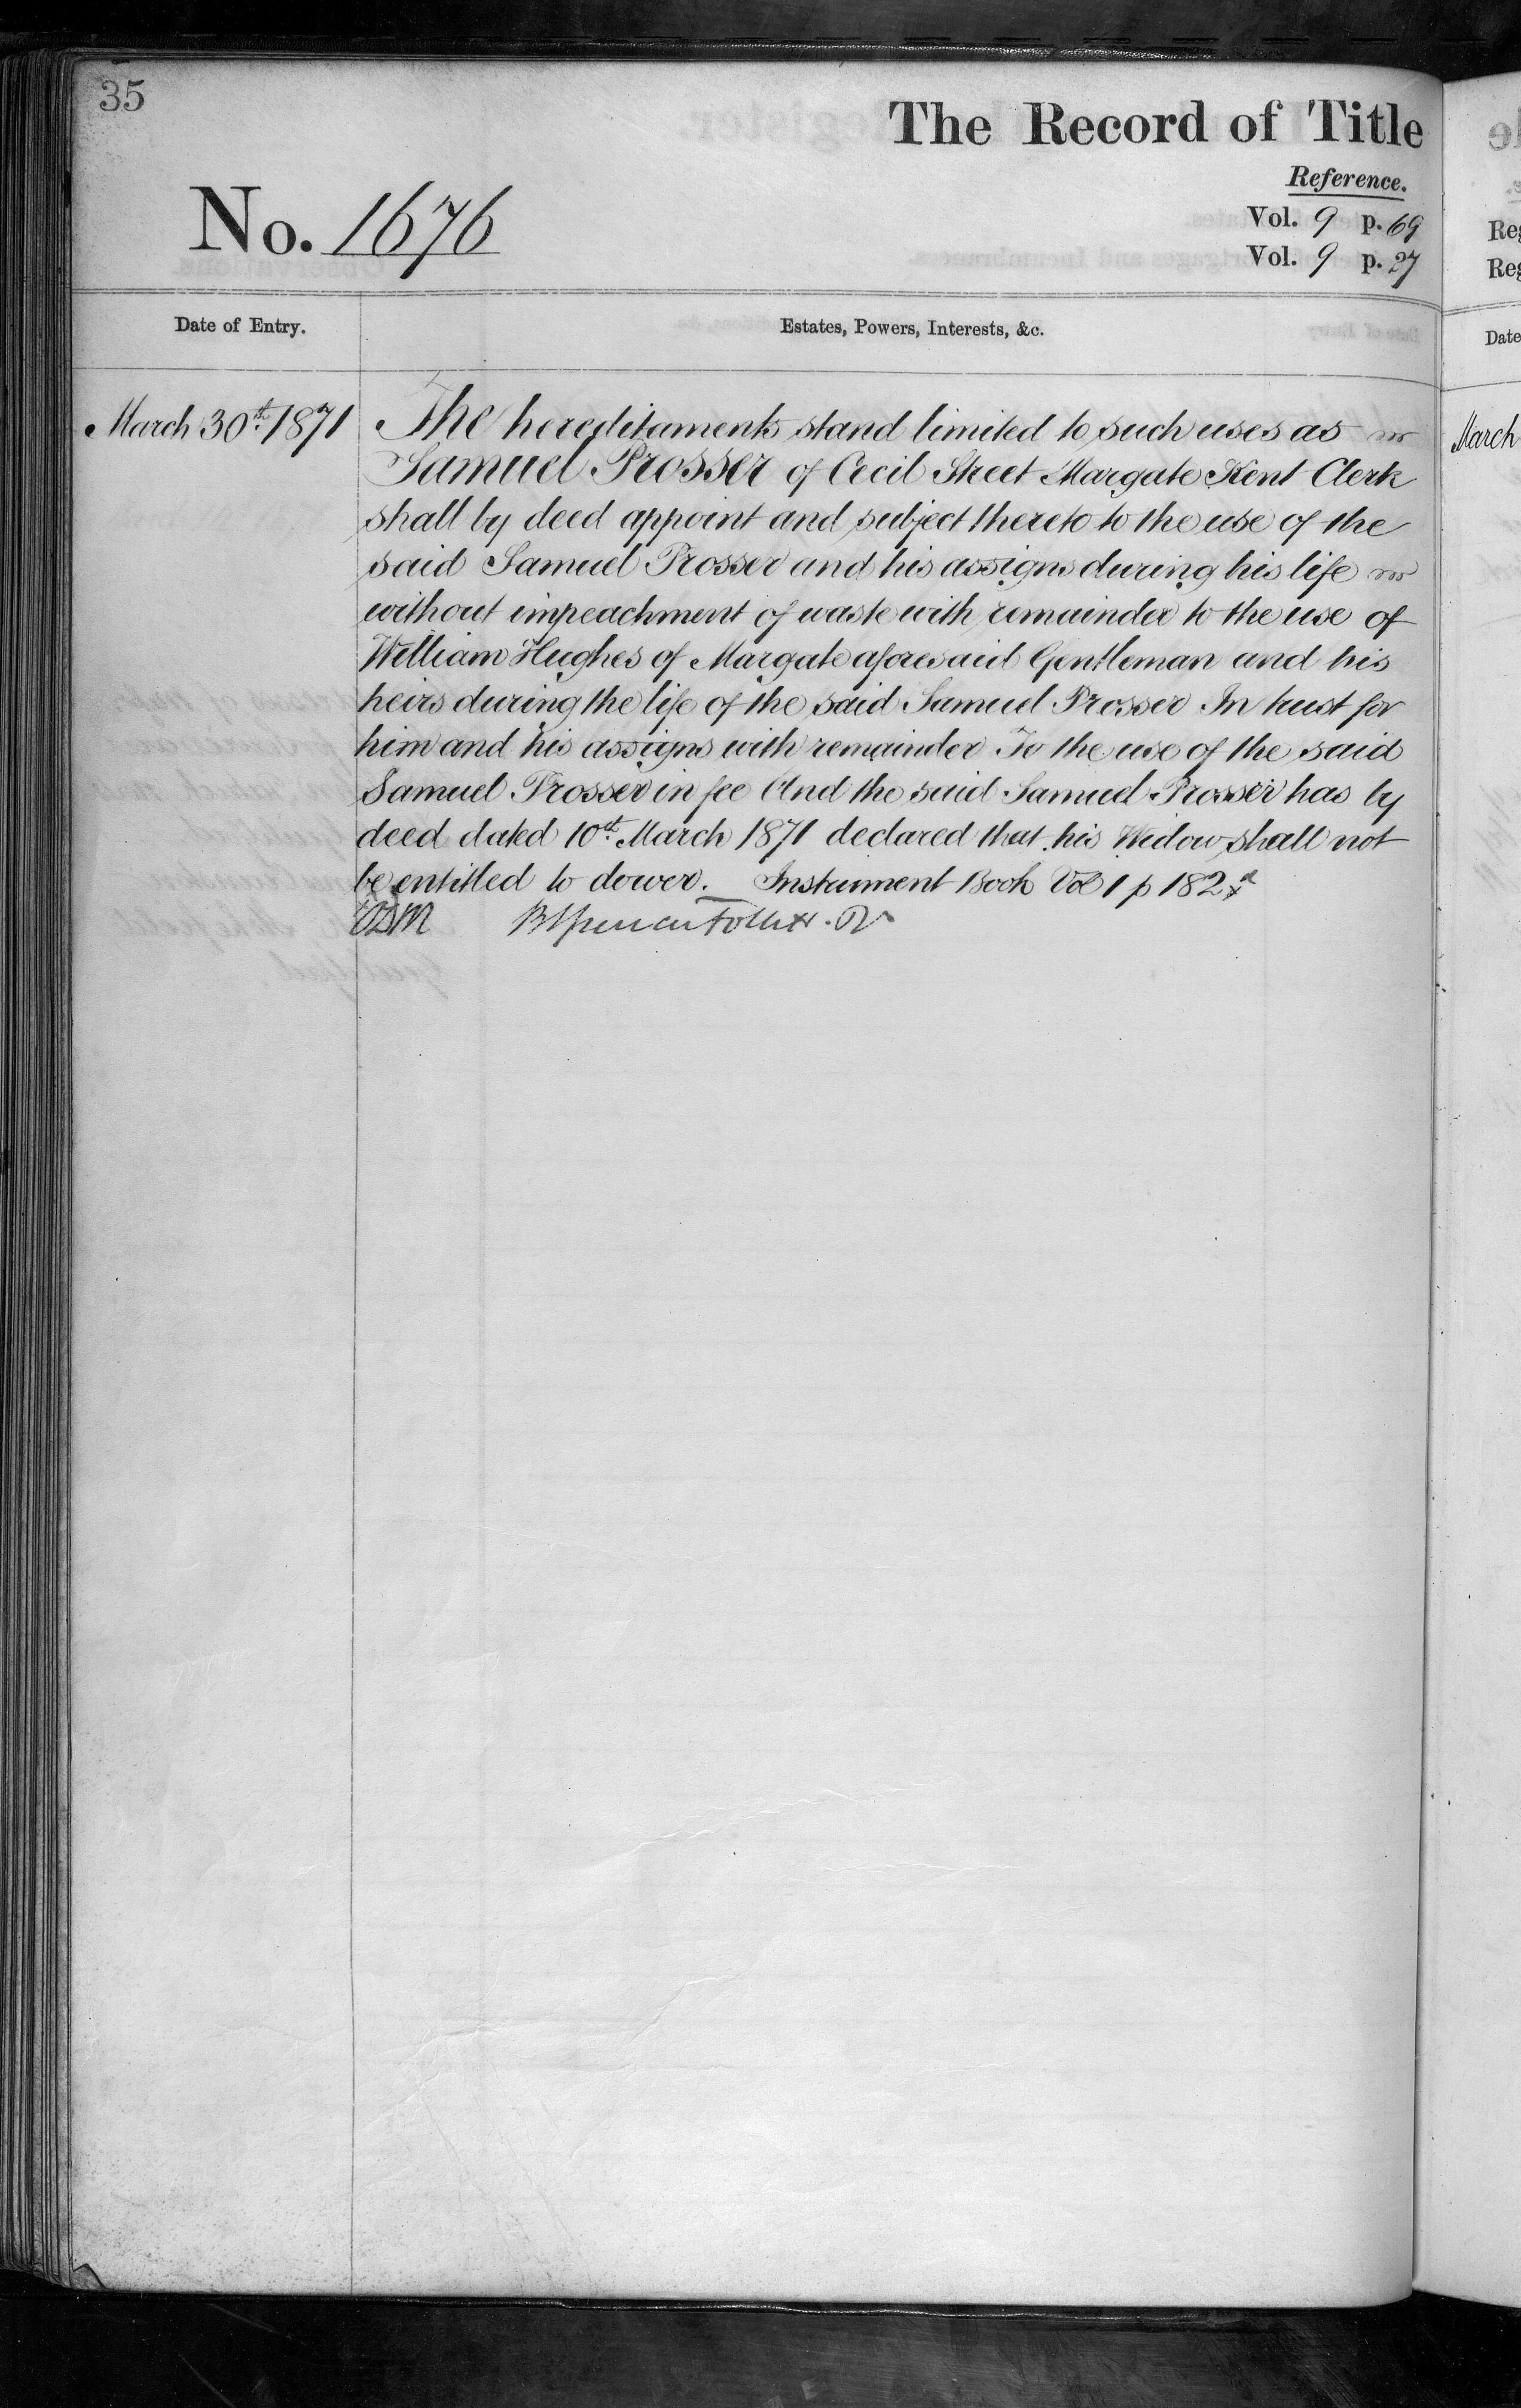 35
The Record of Title
Reference.
No. 1676
Vol. 9 p. 69
Vol. 9 p. 27
Date of Entry.
Estates, Powers, Interests, &c.
March 30th 1871
The hereditaments stand limited to such uses as
Samuel Prosser of Cecil Street Margate Kent Clerk
shall by deed appoint and subject thereto to the use of the
said Samuel Prosser and his assigns during his life
without impeachment of waste with remainder to the use of
William Hughes of Margate aforesaid Gentleman and his
heirs during the life of the said Samuel Prosser In trust for
him and his assigns with remainder To the use of the said
Samuel Prosser in fee And the said Samuel Prosser has by
deed dated 10th March 1871 declared that his Widow shall not
be entitled to dower. Instrument Book Vol 1 p 182
Reg
Reg
Date
March